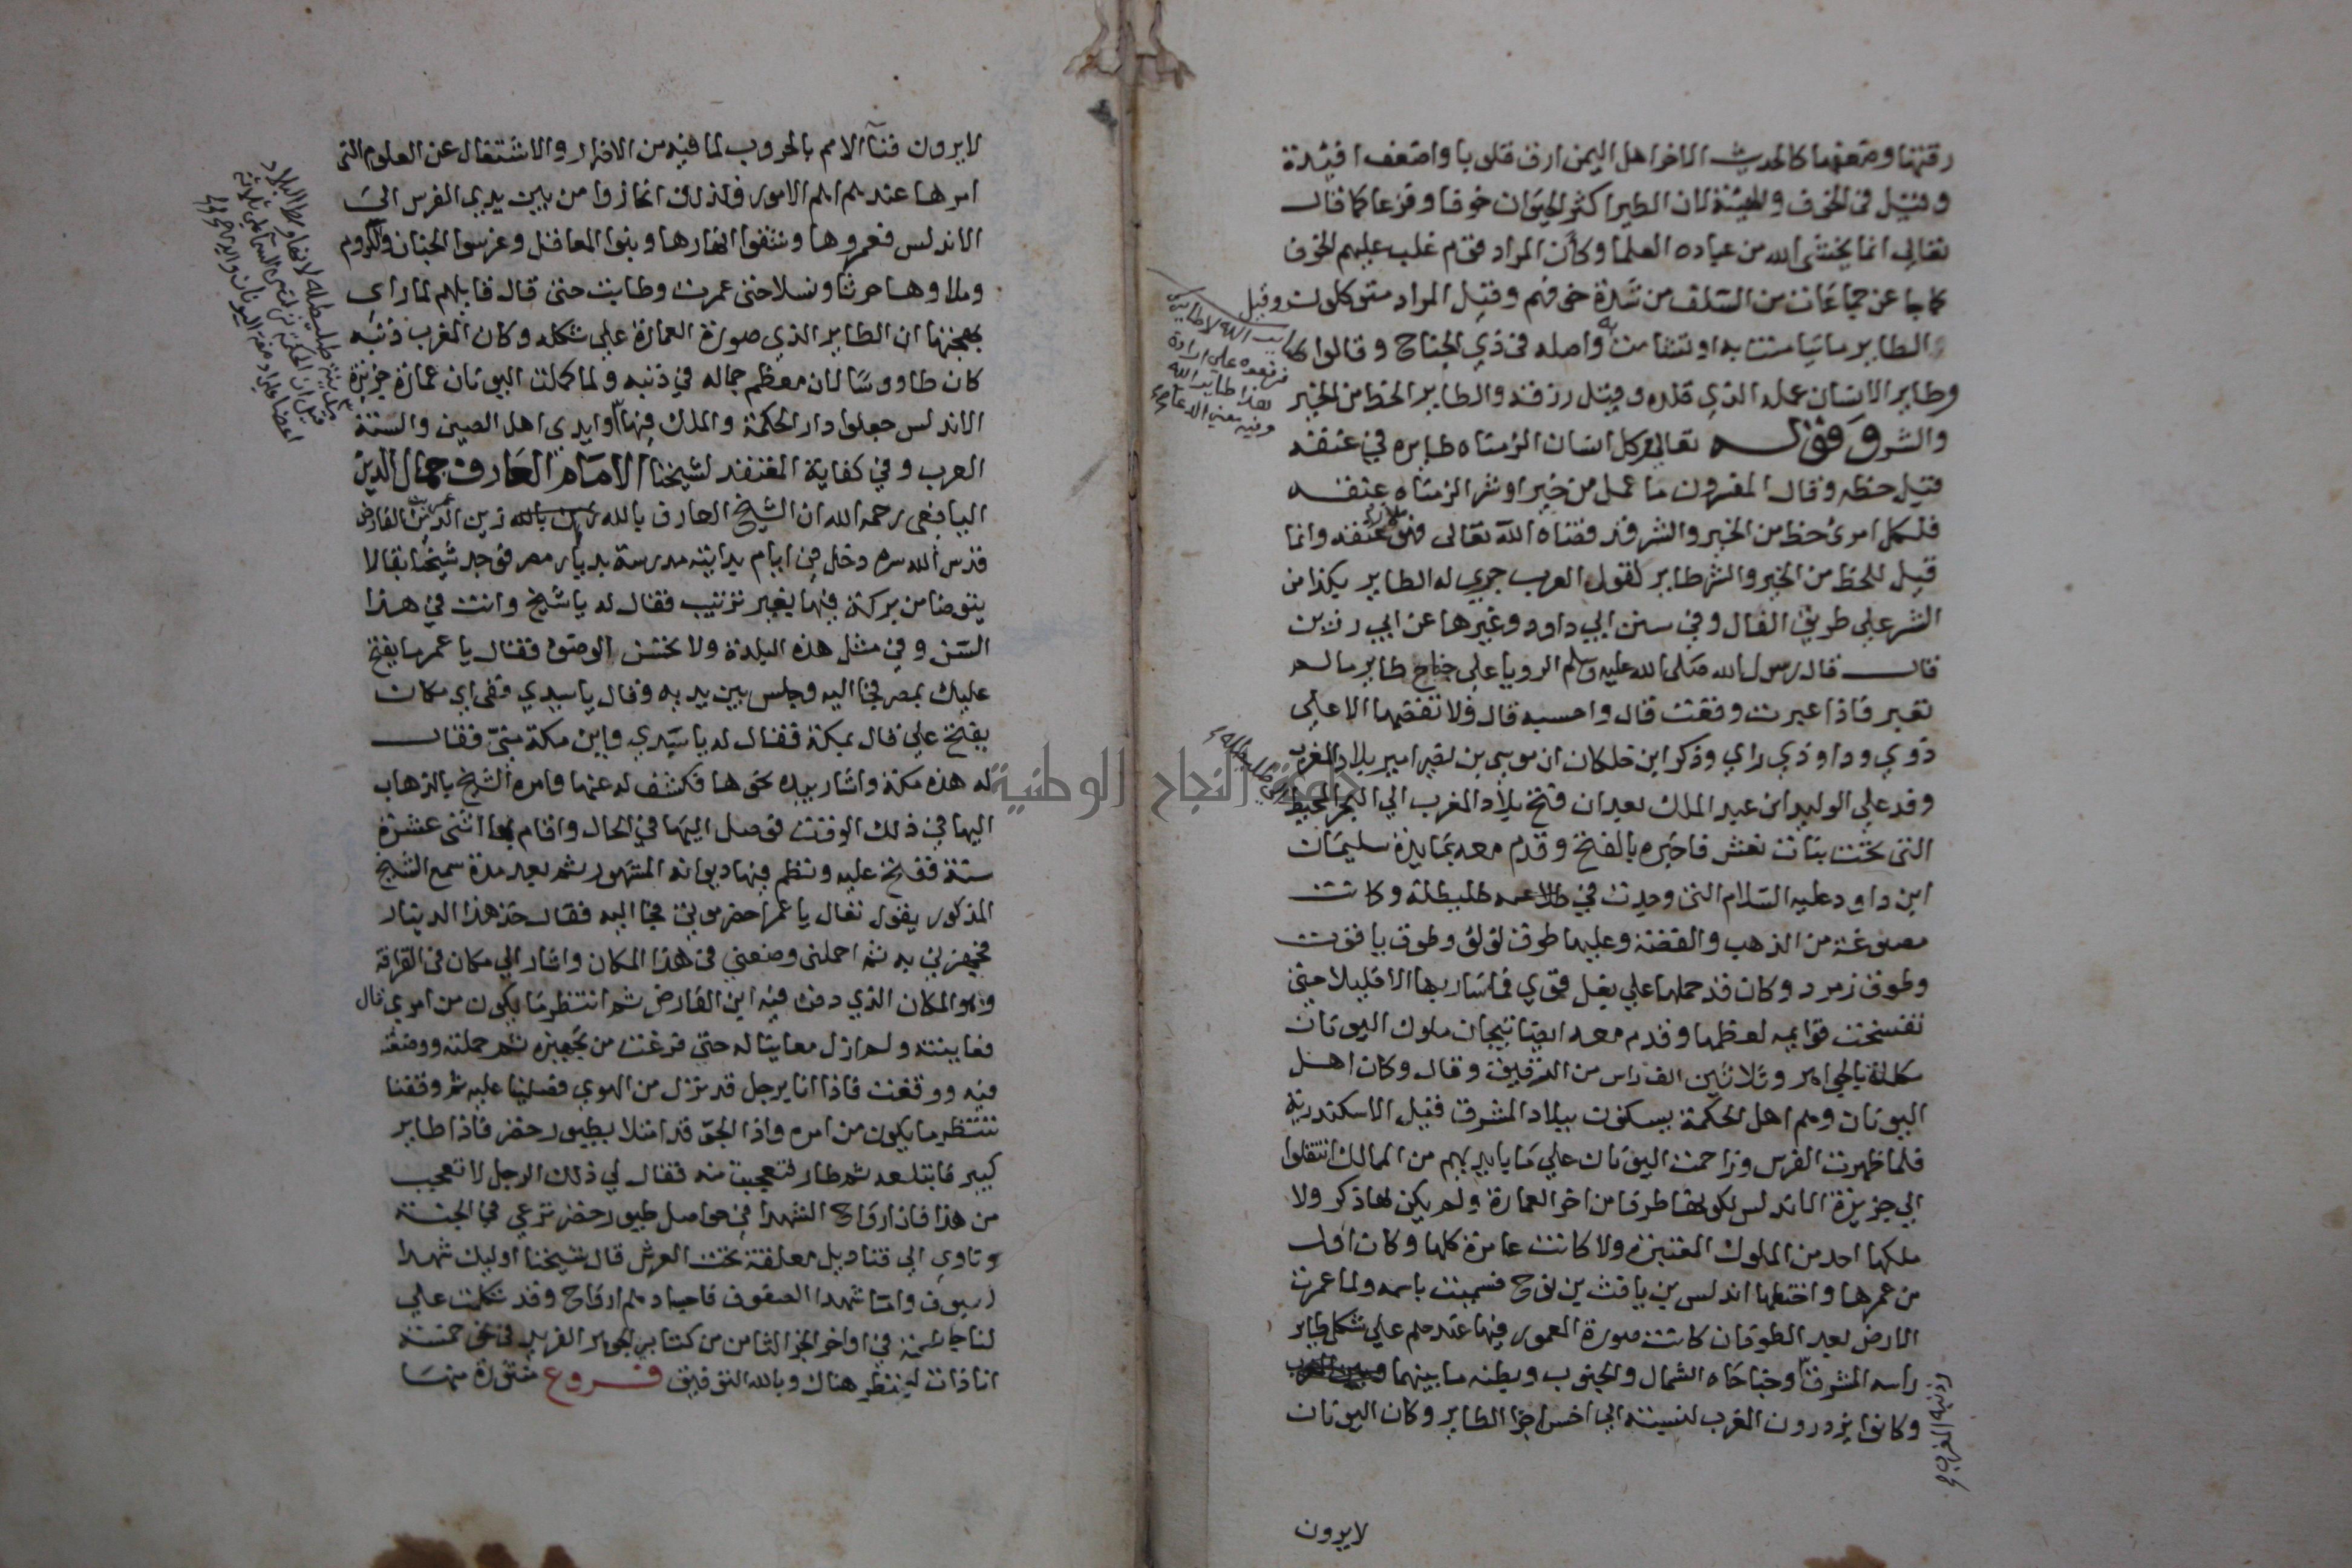 رقتها وضعفها كالحديث الاخر اهل اليمن ارق قلوبا واضعف افيدة
وقيل في الخوف والهيئة لان الطير اكثر الحيوان خوفا وفزعا كما قال
تعالي انما يخشي الله من عباده العلما وكأن المراد قوم غلب عليهم الخوف
كما جا عن جماعات من السلف من شدة خوفهم وقيل المراد متوكلون وقيل
والطاير ما تيامنت به او تشامت به واصله في ذي الجناح وقالوا
طاير الله لا طايرك
فرفعوه علي ارادة
هذا طاير الله
وفيه معني الدعا صح
وطاير الانسان عمله الذي قلده وقيل رزقه والطاير الحظ من الخير
والشر وقوله تعالي وكل انسان الزمناه طايره في عنقه
قيل حظه وقال المفسرون ما عمل من خير او شر الزمناه عنقه
فلكل امرئ حظ من الخير والشر قد قضاه الله تعالى فهو لازم عنقه وانما
قيل للحظ من الخير والشر طاير لقول العرب جري له الطاير بكذا من
الشر علي طريق الفال وفي سنن ابي داود وغيرها عن ابي رزين
قال قال رسول الله صلى الله عليه وسلم الرويا علي جناح طاير ما لم
تعبر فاذا عبرت وقعت قال واحسبه قال ولا تقصها الا علي
ذوي ود او ذي راي وذكر ابن خلكان ان موسي بن نصير امير بلاد المغرب
وفد علي الوليد ابن عبد الملك بعد ان فتح بلاد المغرب الي البحر المحيط
التي تحت بنات نعش فاخبره بالفتح وقدم معه بمايدة سليمان
ابن داود عليه السلام التي وجدت في طليطلة وكانت
مصوغة من الذهب والفضة وعليها طوق لولو وطوق ياقوت
وطوق زمرد وكان قد حملها علي بغل قوي فما سار بها الا قليلا حتي
تفسخت قوايمه لعظمها وقدم معه ايضا تيجان ملوك اليونان
مكللة بالجواهر وثلاثين الف راس من الرقيق وقال وكان اهل
اليونان وهم اهل الحكمة يسكنون ببلاد المشرق قبل الاسكندرية
فلما ظهرت الفرس وزاحمت اليونان علي ما بايديهم من الممالك انتقلوا
الي جزيرة الاندلس لكونها طرفا من اخر العمارة ولم يكن لها ذكر ولا
ملكها احد من الملوك المعتبرة ولا كانت عامرة كلها وكان اول
من عمرها واختطها اندلس بن يافث بن نوح فسميت باسمه ولما عمرت
الارض بعد الطوفان كانت صورة المعمور فيها عندهم علي شكل طاير
راسه المشرق وجناحاه الشمال والجنوب وبطنه ما بينهما
وذنبه المغرب صح
وكانوا يزدرون المغرب لنسبته الي اخس اجزا الطاير وكان اليونان
لا يرون
لا يرون فنآ الامم بالحروب لما فيه من الاضرار والاشتغال عن العلوم التي
امرها عندهم اهم الامور فلذلك انحازوا من بين يدي الفرس الي
الاندلس فعمروها وشقوا انهارها وبنوا المعاقل وغرسوا الجنان والكروم
وملاوها حرثا ونسلا حتى عمرت وطابت حتى قال قايلهم لما راي
بهجتها ان الطاير الذي صورة العمارة علي شكله وكان المغرب ذنبه
كان طاووسا لان معظم جماله في ذنبه ولما كملت اليونان عمارة جزيرة
الاندلس جعلوا دار الحكمة والملك فيها
مدينة طليطله لانها وسط البلاد
قيل ان الحكمة نزلت من السما علي ثلاثة
اعضا علي ادمغة اليونان وايدي
وايدي اهل الصين والسنة
العرب وفي كفاية المعتقد لشيخنا الامام العارف جمال الدين
اليافعي رحمه الله ان الشيخ العارف بالله زين الدين عمر بن الفارض
قدس الله سره دخل في ايام بدايته مدرسة بديار مصر فوجد شيخا بقالا
يتوضا من بركة فيها بغير ترتيب فقال له يا شيخ وانت في هذا
السن وفي مثل هذه البلدة ولا تحسن الوضوء فقال يا عمر ما يفتح
عليك بمصر فجا اليه وجلس بين يديه وقال يا سيدي ففي اي مكان
يفتح علي قال بمكة فقال له يا سيدي واين مكة مني فقال
له هذه مكة واشار بيده نحوها فكشف له عنها وامره الشيخ بالذهاب
اليها في ذلك الوقت فوصل اليها في الحال واقام بها اثنتي عشرة
سنة ففتح عليه ونظم فيها ديوانه المشهور ثم بعد مدة سمع الشيخ
المذكور يقول تعال يا عمر احضر موتي فجا اليه فقال خذ هذا الدينار
فجهزني به ثم احملني وضعني في هذا المكان واشار الي مكان في القرافة
وهو المكان الذي دفن فيه ابن الفارض ثم انتظر ما يكون من امري قال
فعاينته ولم ازل معاينا له حتى فرغت من تجهيزه ثم حملته ووضعته
فيه ووقفت فاذا انا برجل قد نزل من الهوي فصلينا عليه ثم وقفنا
ننتظر ما يكون من امره واذا الجو قد امتلا بطيور خضر فاذا طاير
كبير فابتلعه ثم طار فتعجبت منه فقال لي ذلك الرجل لا تعجب
من هذا فان ارواح الشهدا في حواصل طيور خضر ترعي في الجنة
وتاوي الي قناديل معلقة تحت العرش قال شيخنا اوليك شهدا
السيوف واما شهدا الصفوف فاجسادهم ارواح وقد تكلمت علي
في اواخر الجز الثامن من كتابي الجوهر الفريد في نحو خمسة
فلينظر هناك وبالله التوفيق فروع منثورة منها
جامعة النجاح الوطنية